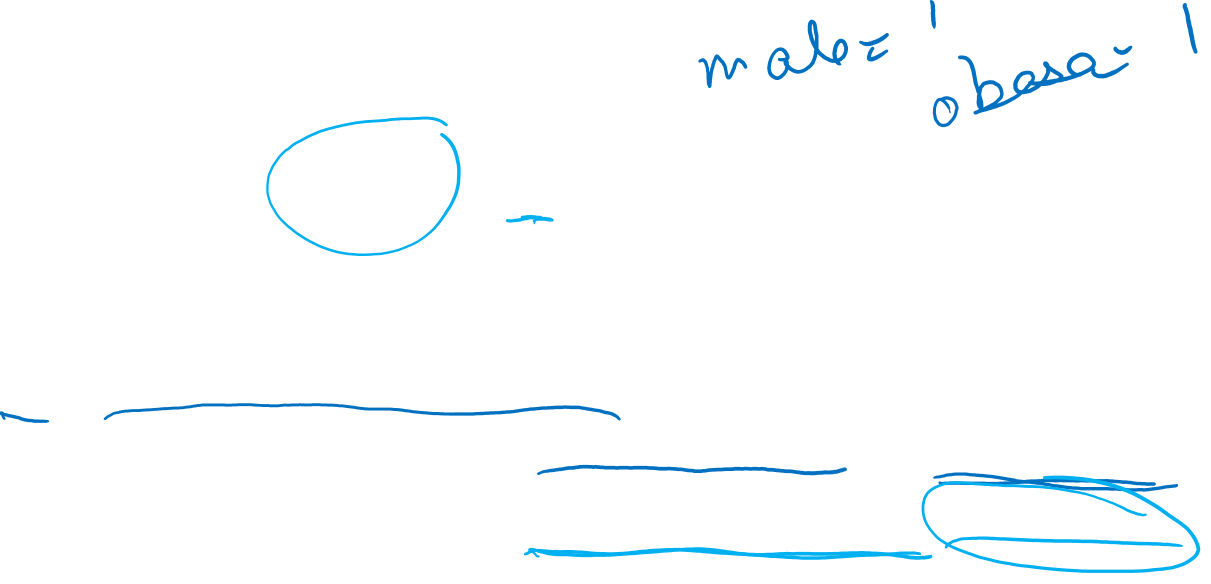 male = 1
obese = 1